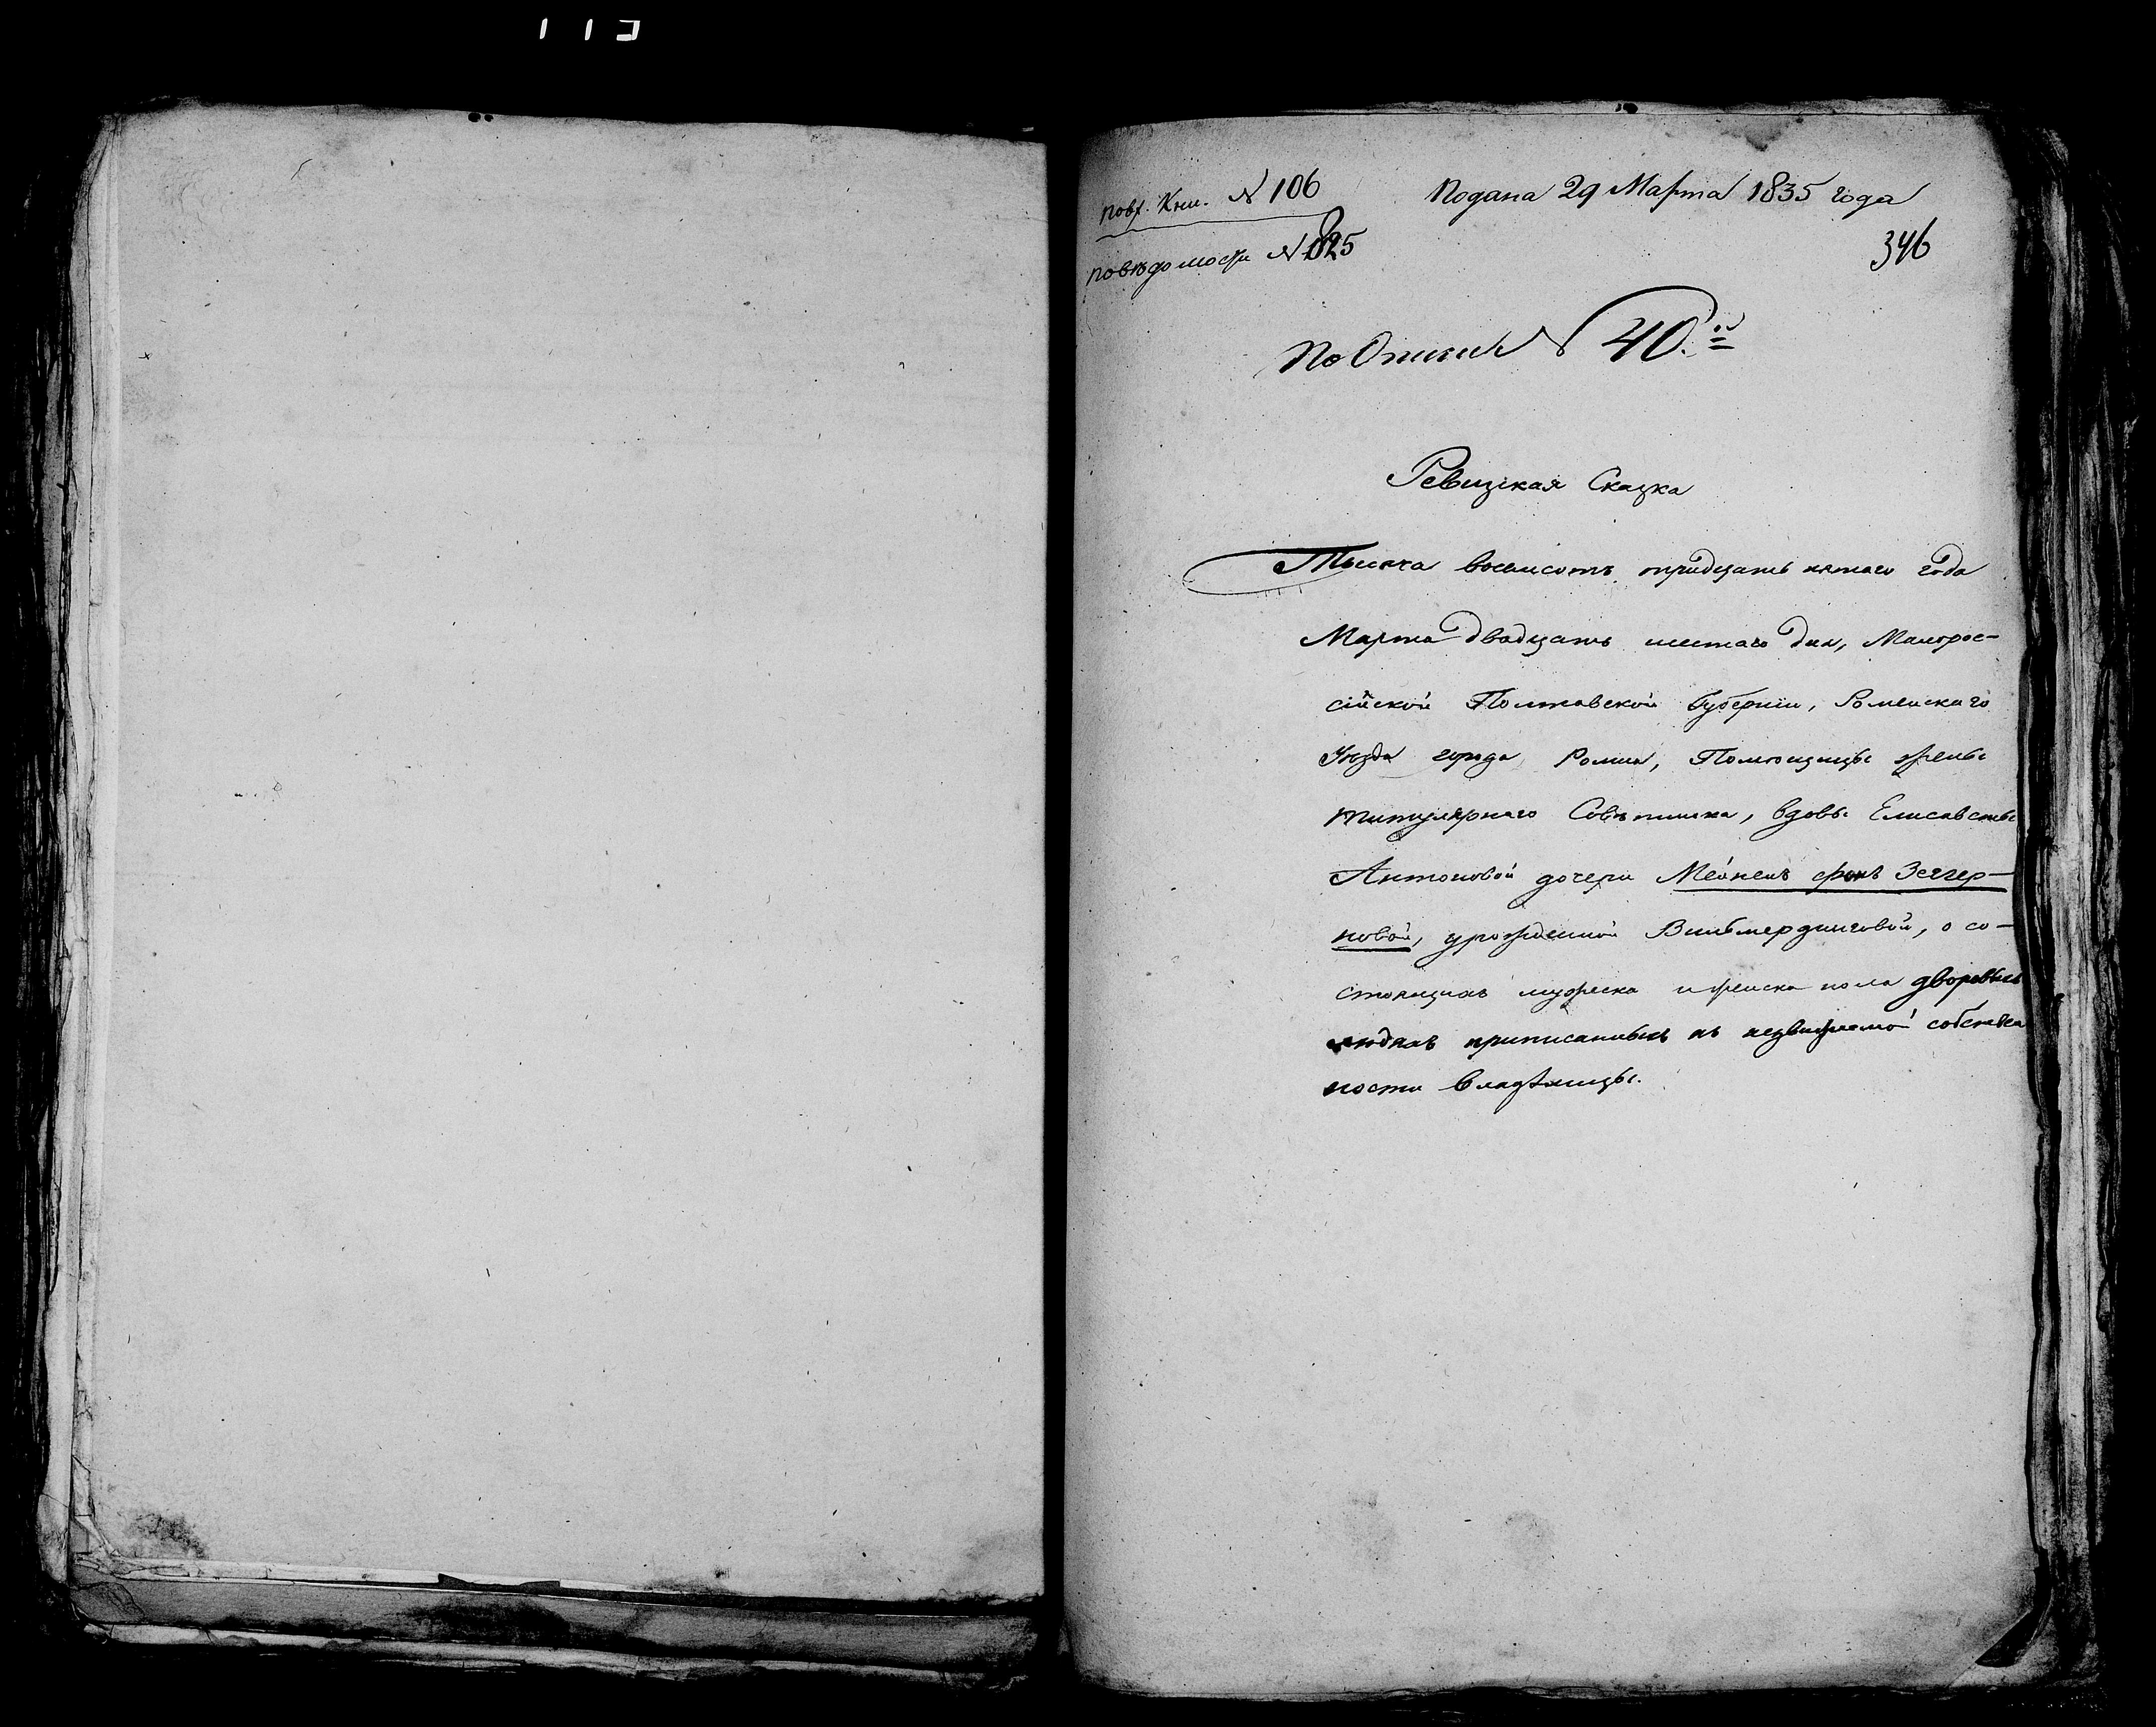 113
По вх. Кни. № 106
Подана 29 Марта 1835 года
по вѣдомости № 825
346
По Описи № 40.й
Ревизкая Сказка
Тысяча восемсотъ тридцать пятаго года
Марта двадцать шестаго дня, Малорос-
сійской Полтавской Губерніи, Роменскаго
Уезда города Ромна, Помѣщицы жены
титулярнаго Совѣтника, вдовы Елисаветы
Антоновой дочери Мейнекъ фонъ Зеегер-
новой, урожденной Вильмердинговой, о со-
стоящихъ мужеска и женска пола дворовыхъ
людяхъ приписанныхъ къ недвижемой собствен
ности владѣлицы.